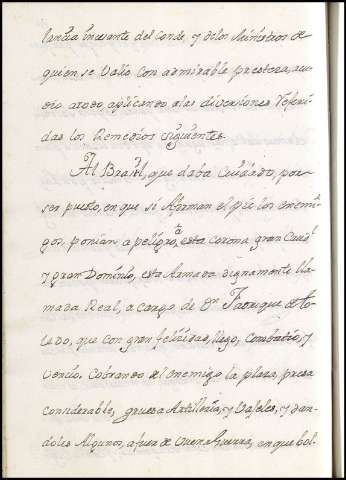 lancia incesante del Conde, y delos Ministros de
quien se Valio con admirable presteza, acu
dio atodo, aplicando alas diversiones Referi
das los Remedios siguientes.
Al Brasil, que daba Cuidado, por
ser puesto, en que si Afirman el pie los enemi
gos, ponian a peligro, a esta corona gran Caudl
y gran Dominio, esta Armada dignamente lla
mada Real, a cargo de Dn Fadrique de to
ledo, que con gran felicidad, llego, Combatio, y
Vencio. Cobrando del enemigo la plaza, presa
Considerable, gruesa Artilleria, y Vajeles, y dan
doles Algunos, a fuer de Buen Guerra, en que bol-